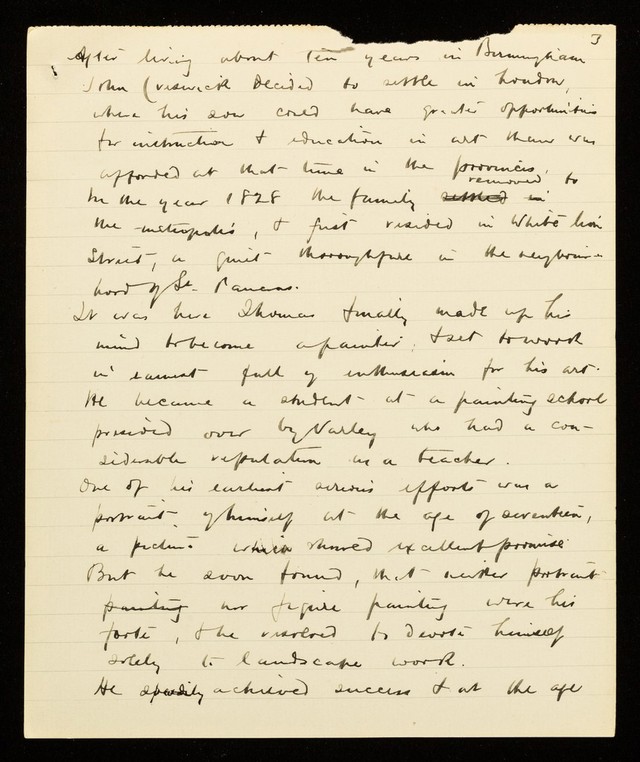 3
After living about ten years in Birmingham
John Creswick decided to settle in London,
where his son could have greater opportunities
for instruction & education in art than was
afforded at that time in the provinces.
removed to
In the year 1828 the family settled in
the metropolis, & first resided in White Lion
Street, a quiet thoroughfare in the neighbour-
hood of St. Pancras.
It was here Thomas finally made up his
mind to become a painter, & set to work
in earnest full of enthusiasm for his art.
He became a student at a painting school
presided over by Varley who had a con-
siderable reputation as a teacher.
One of his earliest serious efforts was a
portrait of himself at the age of seventeen,
a picture which showed excellent promise.
But he soon found, that neither portrait
painting nor figure painting were his
forte, & he resolved to devote himself
solely to landscape work.
He speedily achieved success & at the age